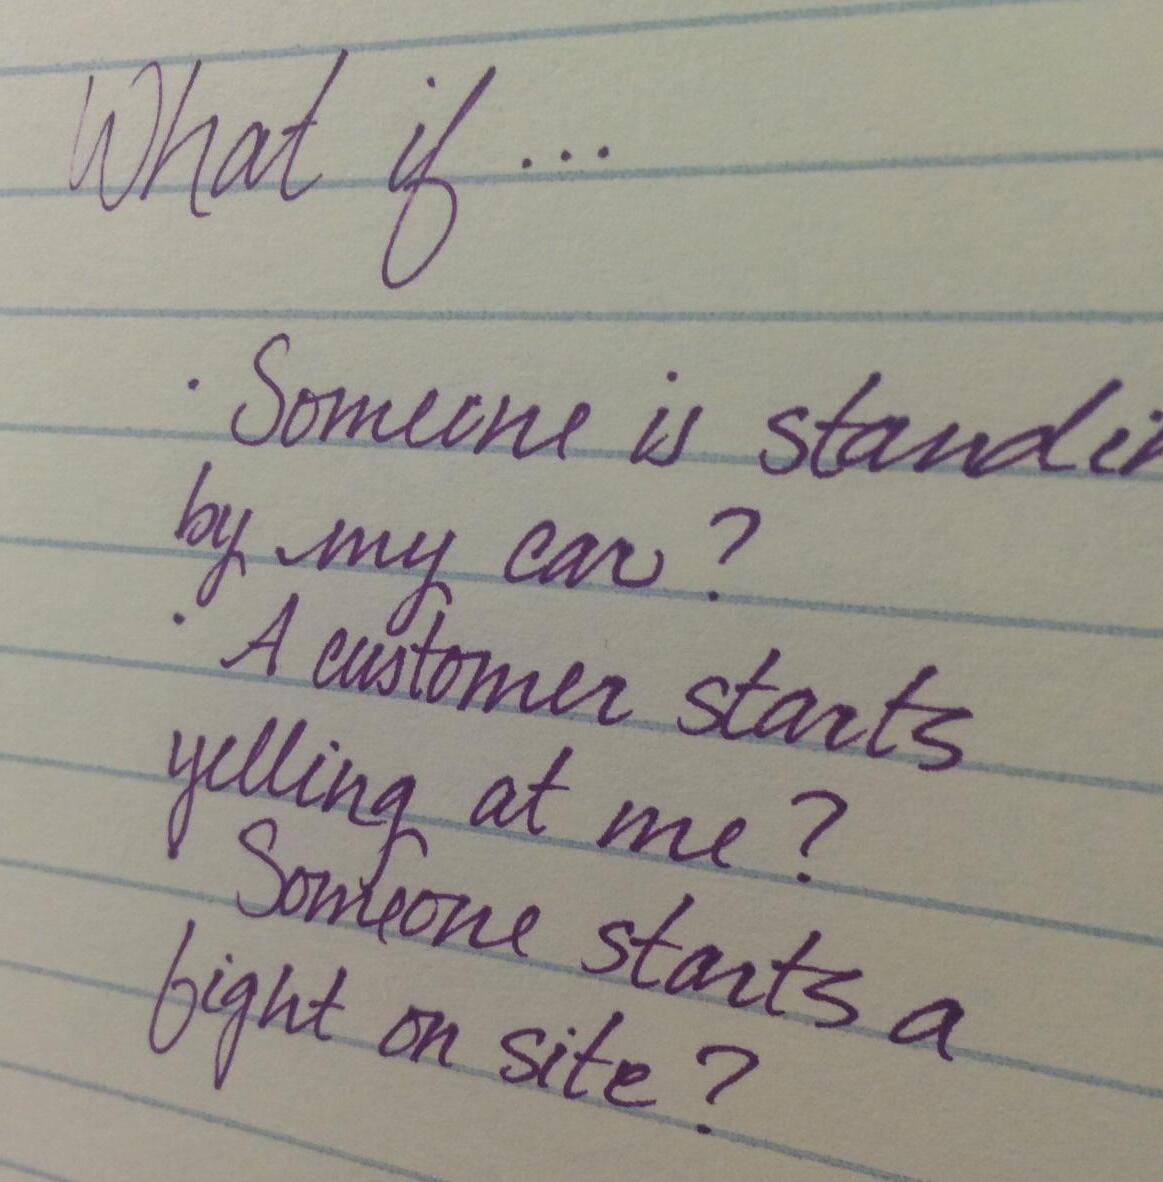 What if...
· Someone is standin
by my car?
· A customer starts
yelling at me?
Someone starts a
fight on site?